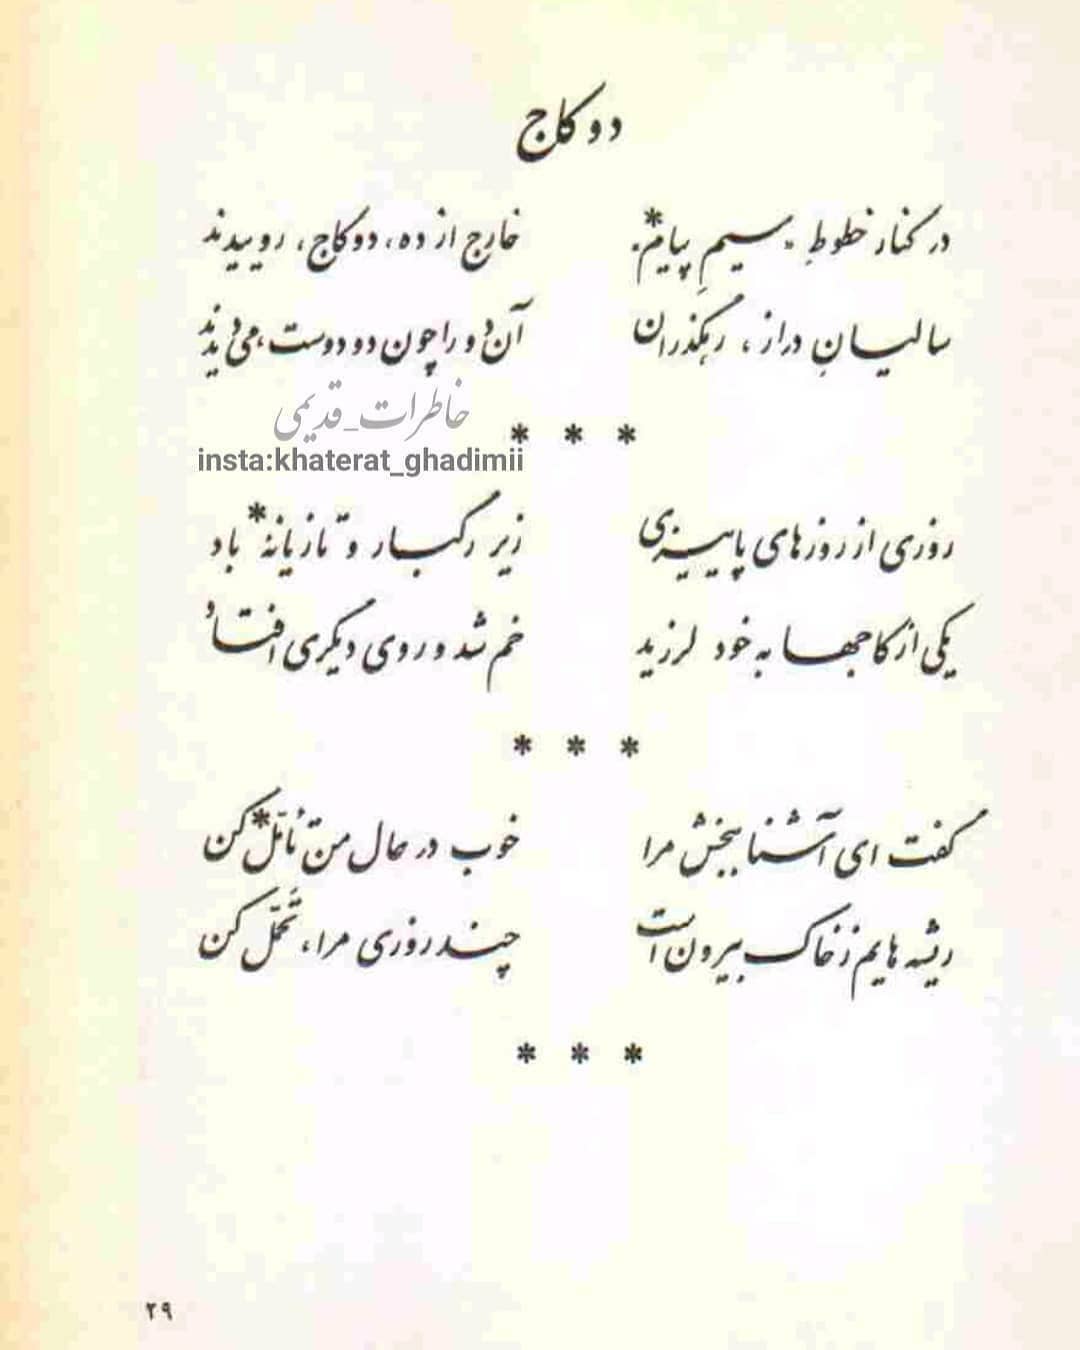 دو کاج
در کنار خطوطِ سیمِ پیام* خارج از ده، دو کاج، روییدند
سالیانِ دراز، رهگذران آن دو را چون دو دوست، می‌دیدند
خاطرات_قدیمی
* * *
insta:khaterat_ghadimii
روزی از روزهای پاییزی زیر رگبار و تازیانهٔ* باد
یکی از کاجها به خود لرزید خم شد و روی دیگری افتاد
* * *
گفت ای آشنا ببخش مرا خوب در حال من تأمّل* کن
ریشه هایم ز خاک بیرون است چند روزی مرا، تحَمّل کن
* * *
۲۹